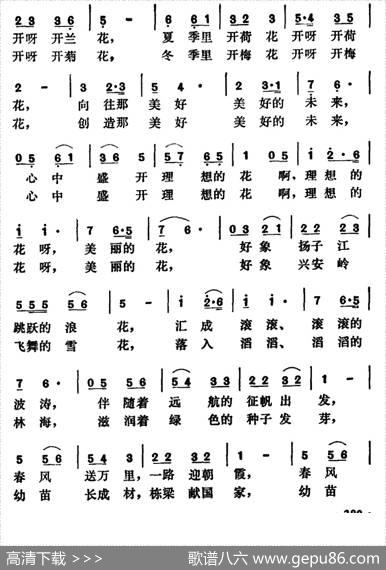 2 3 3 6 | 5 - | 6 6 1 | 3 2 3 | 5·4 3 5
开呀 开兰 花， 夏 季里 开荷 花 开呀 开荷
开呀 开菊 花， 冬 季里 开梅 花 开呀 开梅
2 - | 3 2·3 | 5 4· | 2 3·1 | 7 6·
花， 向 往那 美 好 美 好的 未 来，
花， 创 造那 美 好 美 好的 未 来，
0 5 6 1 | 3 6 5 | 5 7 6 5 | 1 0 5 | i 2·6
心 中 盛 开 理 想的 花 啊， 理 想的
心 中 盛 开 理 想的 花 啊， 理 想的
i i· | 7 6·5 | 7 6· | 0 3 2 1 | 2 2 2 3
花 呀， 美 丽的 花， 好象 扬子 江
花 呀， 美 丽的 花， 好象 兴安 岭
5 5 5 5 6 | 5 - | i 2·6 | i i | 7 6·5
跳跃的 浪 花， 汇 成 滚 滚、 滚 滚的
飞舞的 雪 花， 落 入 滔 滔、 滔 滔的
7 6· | 0 5 5 6 | 5 4 3 3 | 2 2 3 2 | 1 -
波 涛， 伴 随着 远 航的 征帆 出 发，
林 海， 滋 润着 绿 色的 种子 发 芽，
5 5 6 | 5 5 6 | 5 0 5 4 | 3 2 3 | 1 - | 5 5 6
春 风 送 万 里， 一路 迎 朝 霞， 春 风
幼 苗 长 成 材， 栋梁 献 国 家， 幼 苗
高清下载 >>> 歌谱八六 www.gepu86.com